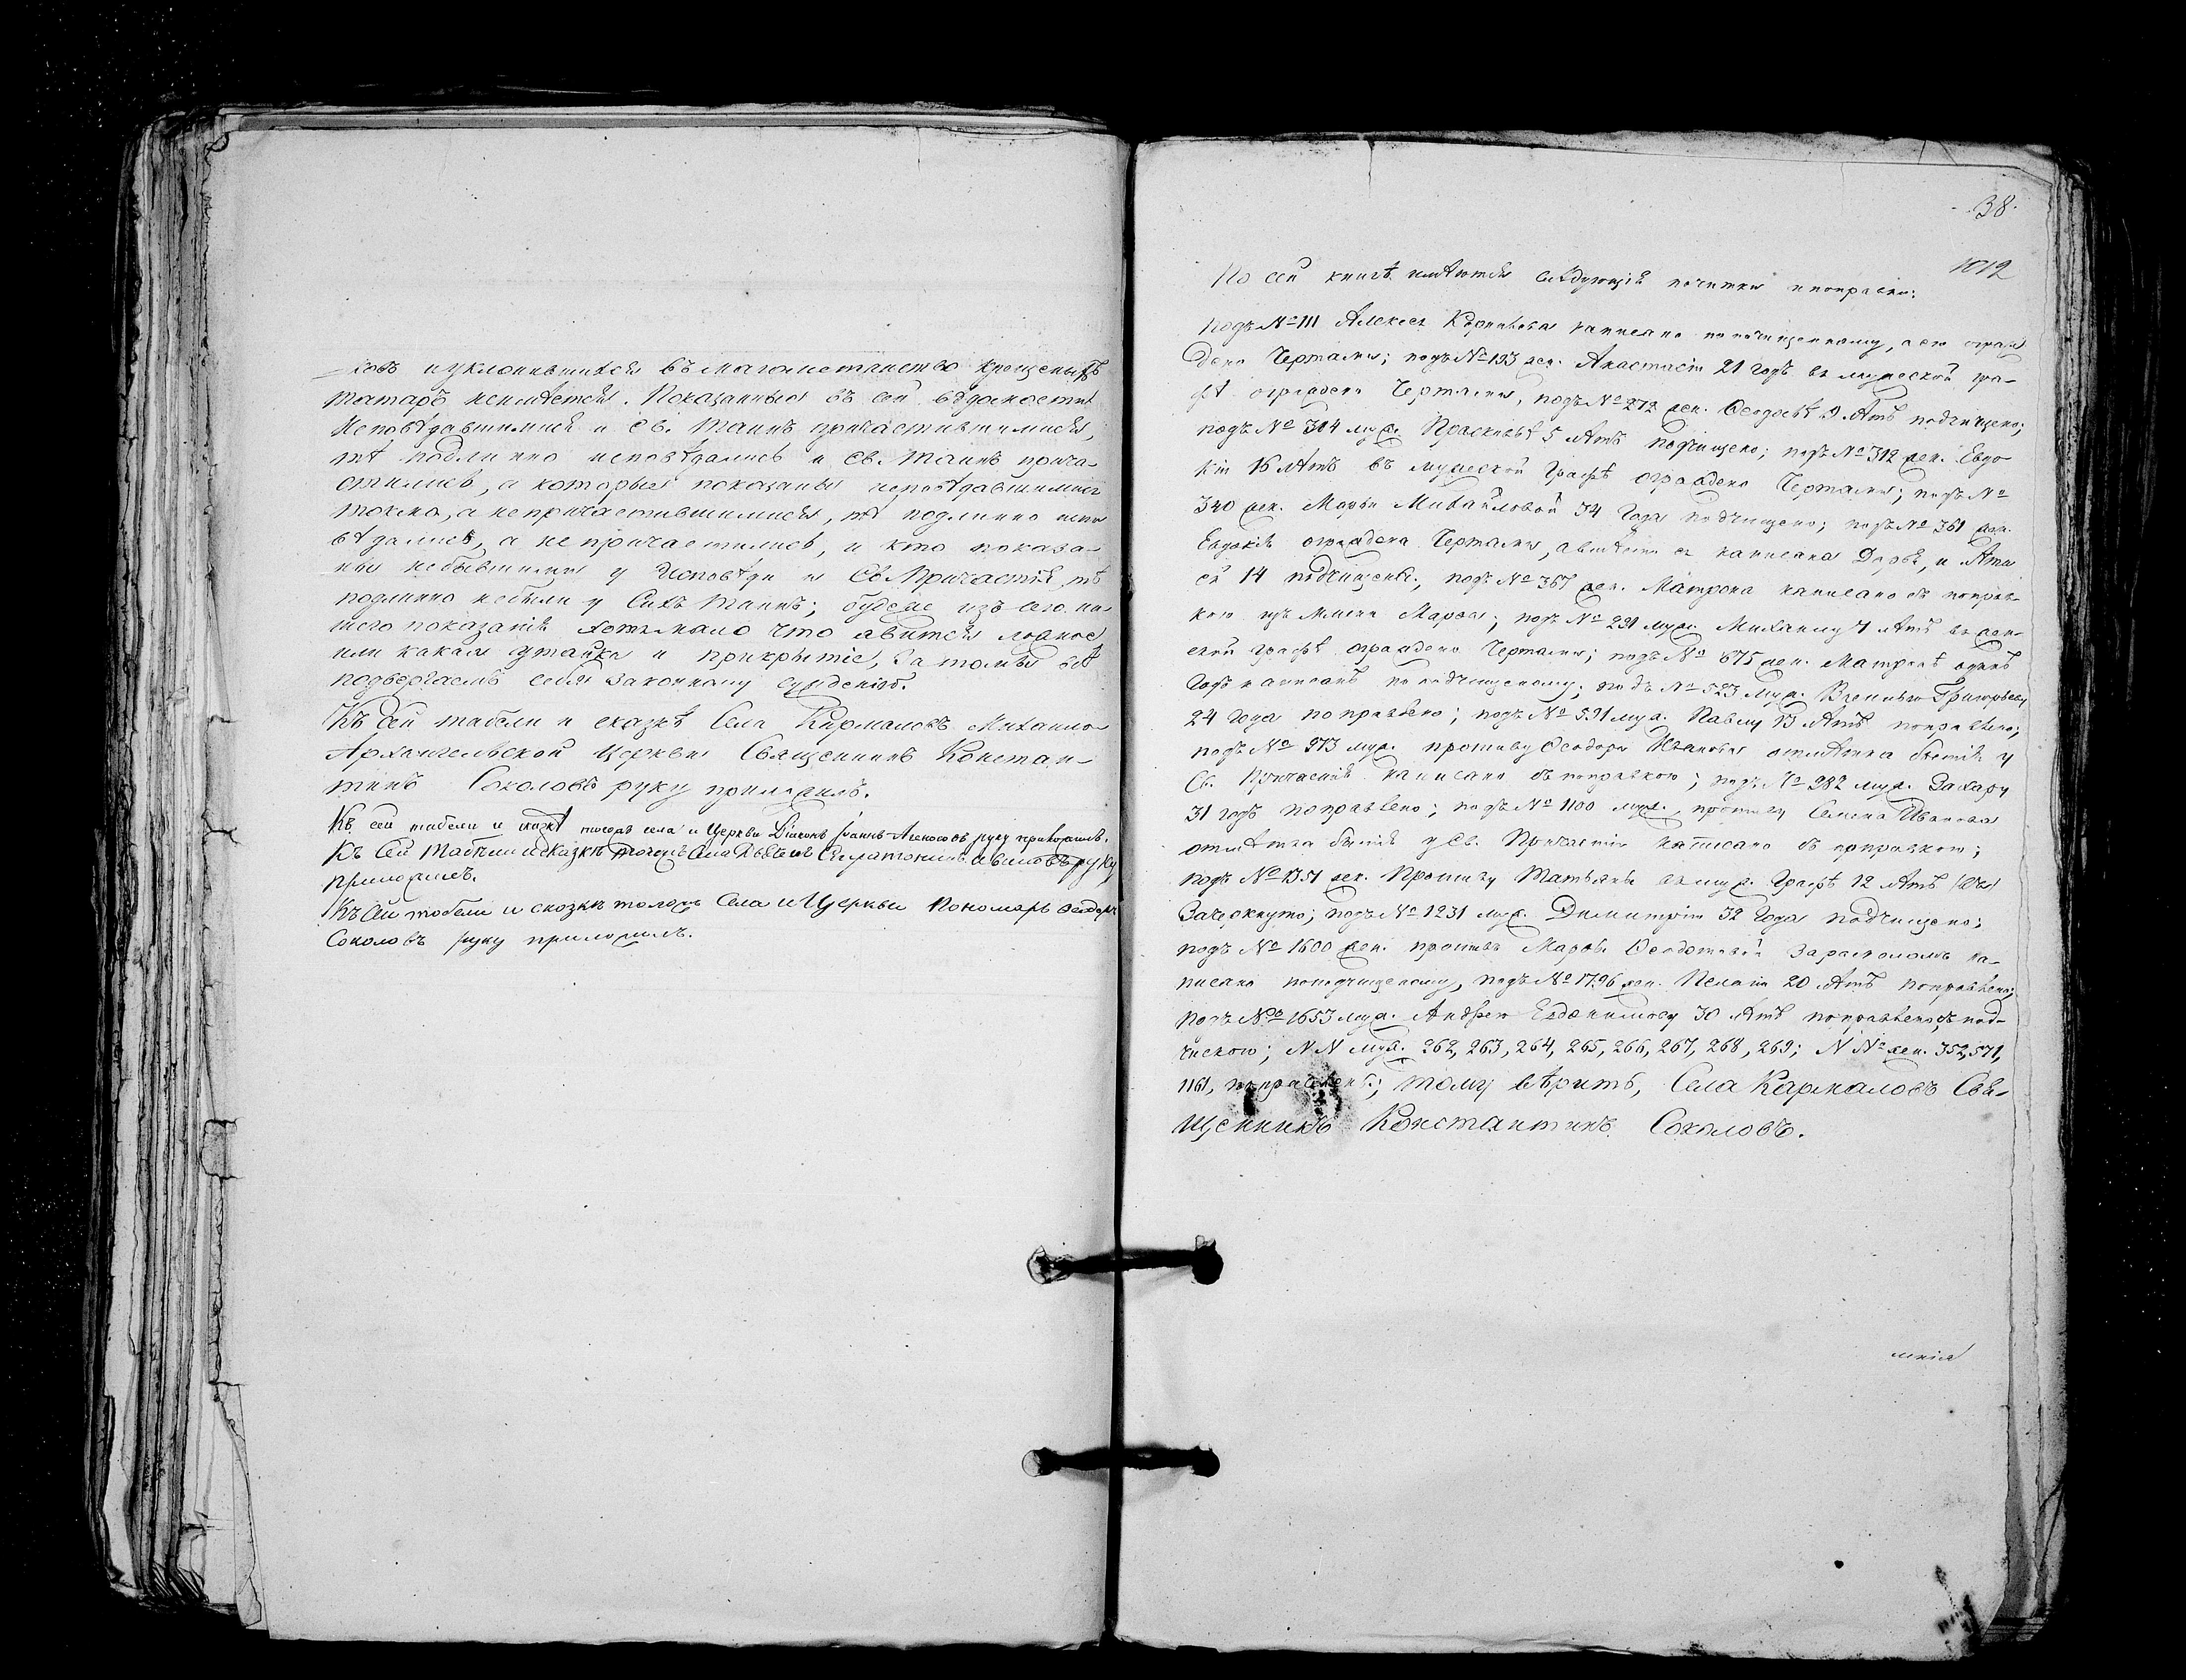 ковъ и уклонившихся въ магометанство крещеныхъ
татаръ неимѣется. Показанныя въ сей вѣдомости
Исповѣдавшимися и Св. Таинъ причастившимися,
тѣ подлинно исповѣдались и Св. Таинъ прича-
стились, а которыя показаны исповѣдавшимися
токмо, а непричастившимися, тѣ подлинно испо
вѣдались, а не причастились, и кто показа-
ны небывшими у Исповѣди и Св. Причастія, тѣ
подлинно небыли у Сихъ Таинъ; будеже изъ сего на-
шего показанія хотя мало что явится ложное
или какая утайка и прикрытіе, за то мы всѣ
подвергаемъ себя законному сужденію.
Къ сей табели и сказкѣ Села Кирмаловъ Михаило
Архангельской Церкви Священникъ Констан-
тинъ Соколовъ руку приложилъ.
Къ сей табели и сказкѣ тогожъ села и Церкви Діаконъ Іоаннъ руку приложилъ.
Къ сей табели и сказкѣ тогожъ Села руку
приложилъ.
Къ сей табели и сказкѣ тогожъ Села и Церкви Пономарь Феодоръ
Соколовъ руку приложилъ.
38.
1012
По сей книгѣ имѣются слѣдующія почитки и поправки:
подъ № 111 Алексея написано по почищенному, а его ограж
дено Чертами; подъ № 193 жен. Анастасіи 21 годъ въ мужеской гра-
фѣ ограждено Чертами, подъ № 272 жен. Феодосьѣ 9 лѣтъ подчищено;
подъ № 304 муж. Прасковьѣ 5 лѣтъ подчищено; подъ № 312 жен. Евдо
кіи 16 лѣтъ въ мужеской Графѣ ограждено Чертами; подъ №
340 жен. Марьи Михайловой 34 года подчищено; подъ № 361 жен.
Евдокія ограждена Чертами, а вмѣсто ея написана Дарья, и лѣта
ея 14 подчищены; подъ № 367 жен. Матрона написано съ поправ-
кою изъ имени Марѳа; подъ № 291 муж. Михаилу 4 лѣтъ въ жен-
ской графѣ ограждено Чертами; подъ № 675 жен. Матронѣ одинъ
Годъ написанъ по подчищеному; подъ № 523 муж. Василью Григорьеву
24 года поправлено; подъ № 591 муж. Павлу 13 лѣтъ поправлено;
подъ № 973 муж. противу Феодора Иванова отмѣтка бытія у
Св. Причастія написана съ поправкою; подъ № 982 муж. Захару
31 годъ поправлено; подъ № 1100 муж. противу Семена Иванова
отмѣтка бытія у Св. Причастія написана съ поправкою;
подъ № 1351 жен. Противу Татьяны въ муж. Графѣ 12 лѣтъ
Зачеркнуто; подъ № 1231 муж. Димитрію 32 года подчищено;
подъ № 1600 жен. противъ Марѳы Феодотовой За расколомъ на-
писано поподчищеному, подъ № 1796 жен. Пелагіи 20 лѣтъ поправлено;
подъ № 1653 муж. Андрею Евдокимову 30 лѣтъ поправлено съ под-
чискою; N N муж. 262, 263, 264, 265, 266, 267, 268, 269; N № жен. 352, 571,
1161, поправлены; тому вѣрить, Села Кармаловъ Свя-
щенникъ Константинъ Соколовъ.